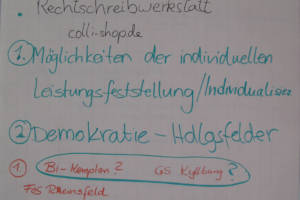 • Rechtschreibwerkstatt
colli-shop.de
1. Möglichkeiten der individuellen
Leistungsfeststellung/Individualisier
2. Demokratie - Hdlgsfelder
1. Bi-Kemplan? GS Kyllburg?
FGS Rheinsfeld